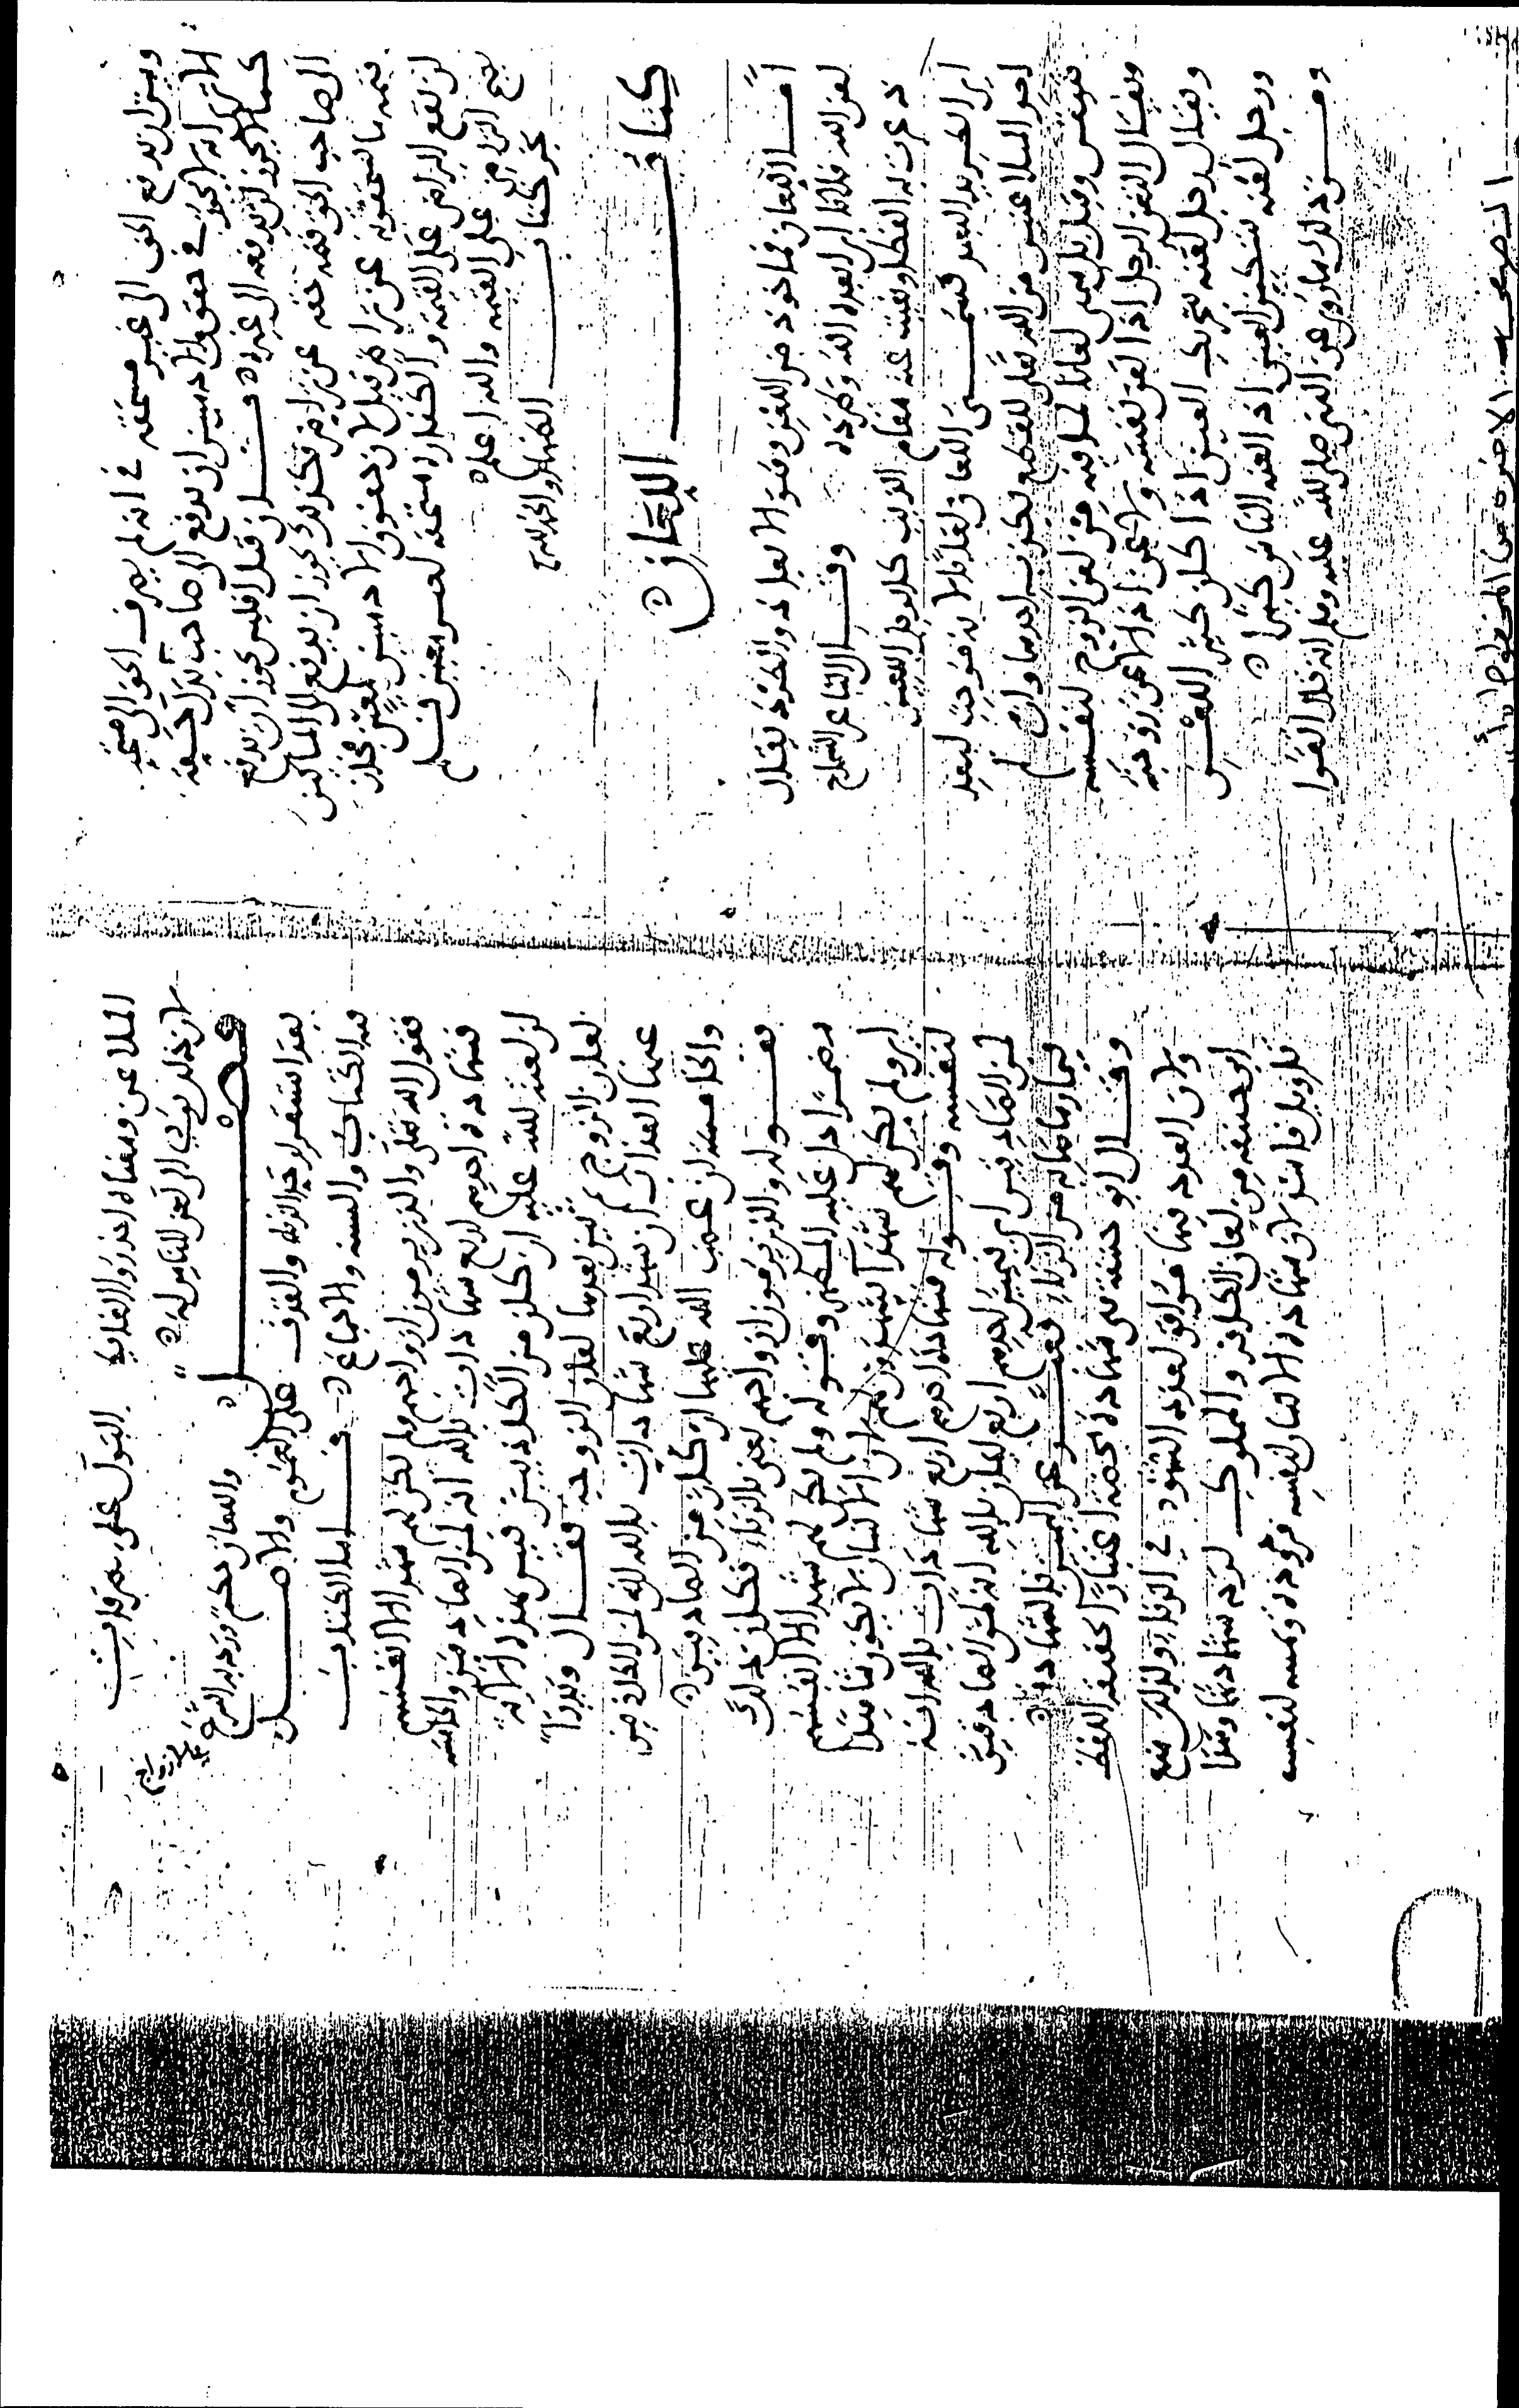 وبين ان يدفع الحق الى غير مستحقه في انه لم يصرف الحق الى مستحقه
الا ترى انه لا يجوز في حقوق الادميين ان يدفع الى صاحب بدل حقه
كما لا يجوز ان يدفعه الى غيره فان قيل افليس يجوز ان يدفع
الى صاحب الحق قيمة حقه عن تراض فكذلك يجوز ان يدفع الى المساكين
قيمة ما يستحقونه عن تراض قيل لان حقوق الادميين لمعين فجاز
ان يقع التراضي على القيمة والكفارة مستحقة لغير معين فلم
يصح التراضي على القيمة والله اعلم
نجز كتاب الظهار والحمد لله
كتاب اللعان
اما اللعان فماخوذ من اللعن وهو الابعاد والطرد يقال
لعن الله فلانا اي ابعده الله وطرده وقال الشاعر الشماخ
ذعرت به القطا ونفيت عنه مقام الذيب كالرجل اللعين
اي الطريد البعيد فسمي اللعان لعانا لانه موجب لبعد
احد المتلاعنين من الله تعالى للقطع بكذب احدهما واثم
ويقال التعن الرجل اذا لعن نفسه ولاعن اذا لاعن زوجته
ويقال رجل لعنة بتحريك العين اذا كان كثير اللعن
ورجل لعنة بتسكين العين اذا لعنه الناس كثيرا
ومن ذلك ما روي عن النبي صلى الله عليه وسلم انه قال اتقوا
الملاعن ومعناه احذروا البول على الطرقات
لان ذلك يؤدي الى لعن الناس له
فصل
واللعان حكم ورد به الشرع
بعد استقرار حد الزنا والقذف على العموم والاصل
فيه الكتاب والسنة والاجماع فاما الكتاب
فقول الله تعالى والذين يرمون ازواجهم ولم يكن لهم شهداء الا انفسهم
فشهادة احدهم اربع شهادات بالله انه لمن الصادقين والخامسة
ان لعنة الله عليه ان كان من الكاذبين فبين بهذه الاية
لعان الزوج ثم بين بعدها لعان الزوجة فقال ويدرأ
عنها العذاب ان تشهد اربع شهادات بالله انه لمن الكاذبين
والخامسة ان غضب الله عليها ان كان من الصادقين
فقوله والذين يرمون ازواجهم يعني بالزنا فكان ذلك
مضمرا دل عليه المظهر وقوله ولم يكن لهم شهداء الا انفسهم
لنفسه وقوله فشهادة احدهم اربع شهادات بالله انه
لمن الصادقين اي فيمين احدهم اربع ايمان بالله انه لمن الصادقين
فيما رماها به من الزنا فعبر عن اليمين بالشهادة
وقال ابو حنيفة هي شهادة محضة اعتبارا بحقيقة اللفظ
ولان العدد فيها موافق لعدد الشهود في الزنا ولذلك منع
ابو حنيفة من لعان الكافر والمملوك لرد شهادتهما وهذا
تاويل فاسد لان شهادة الانسان لنفسه مردودة ويمينه لنفسه